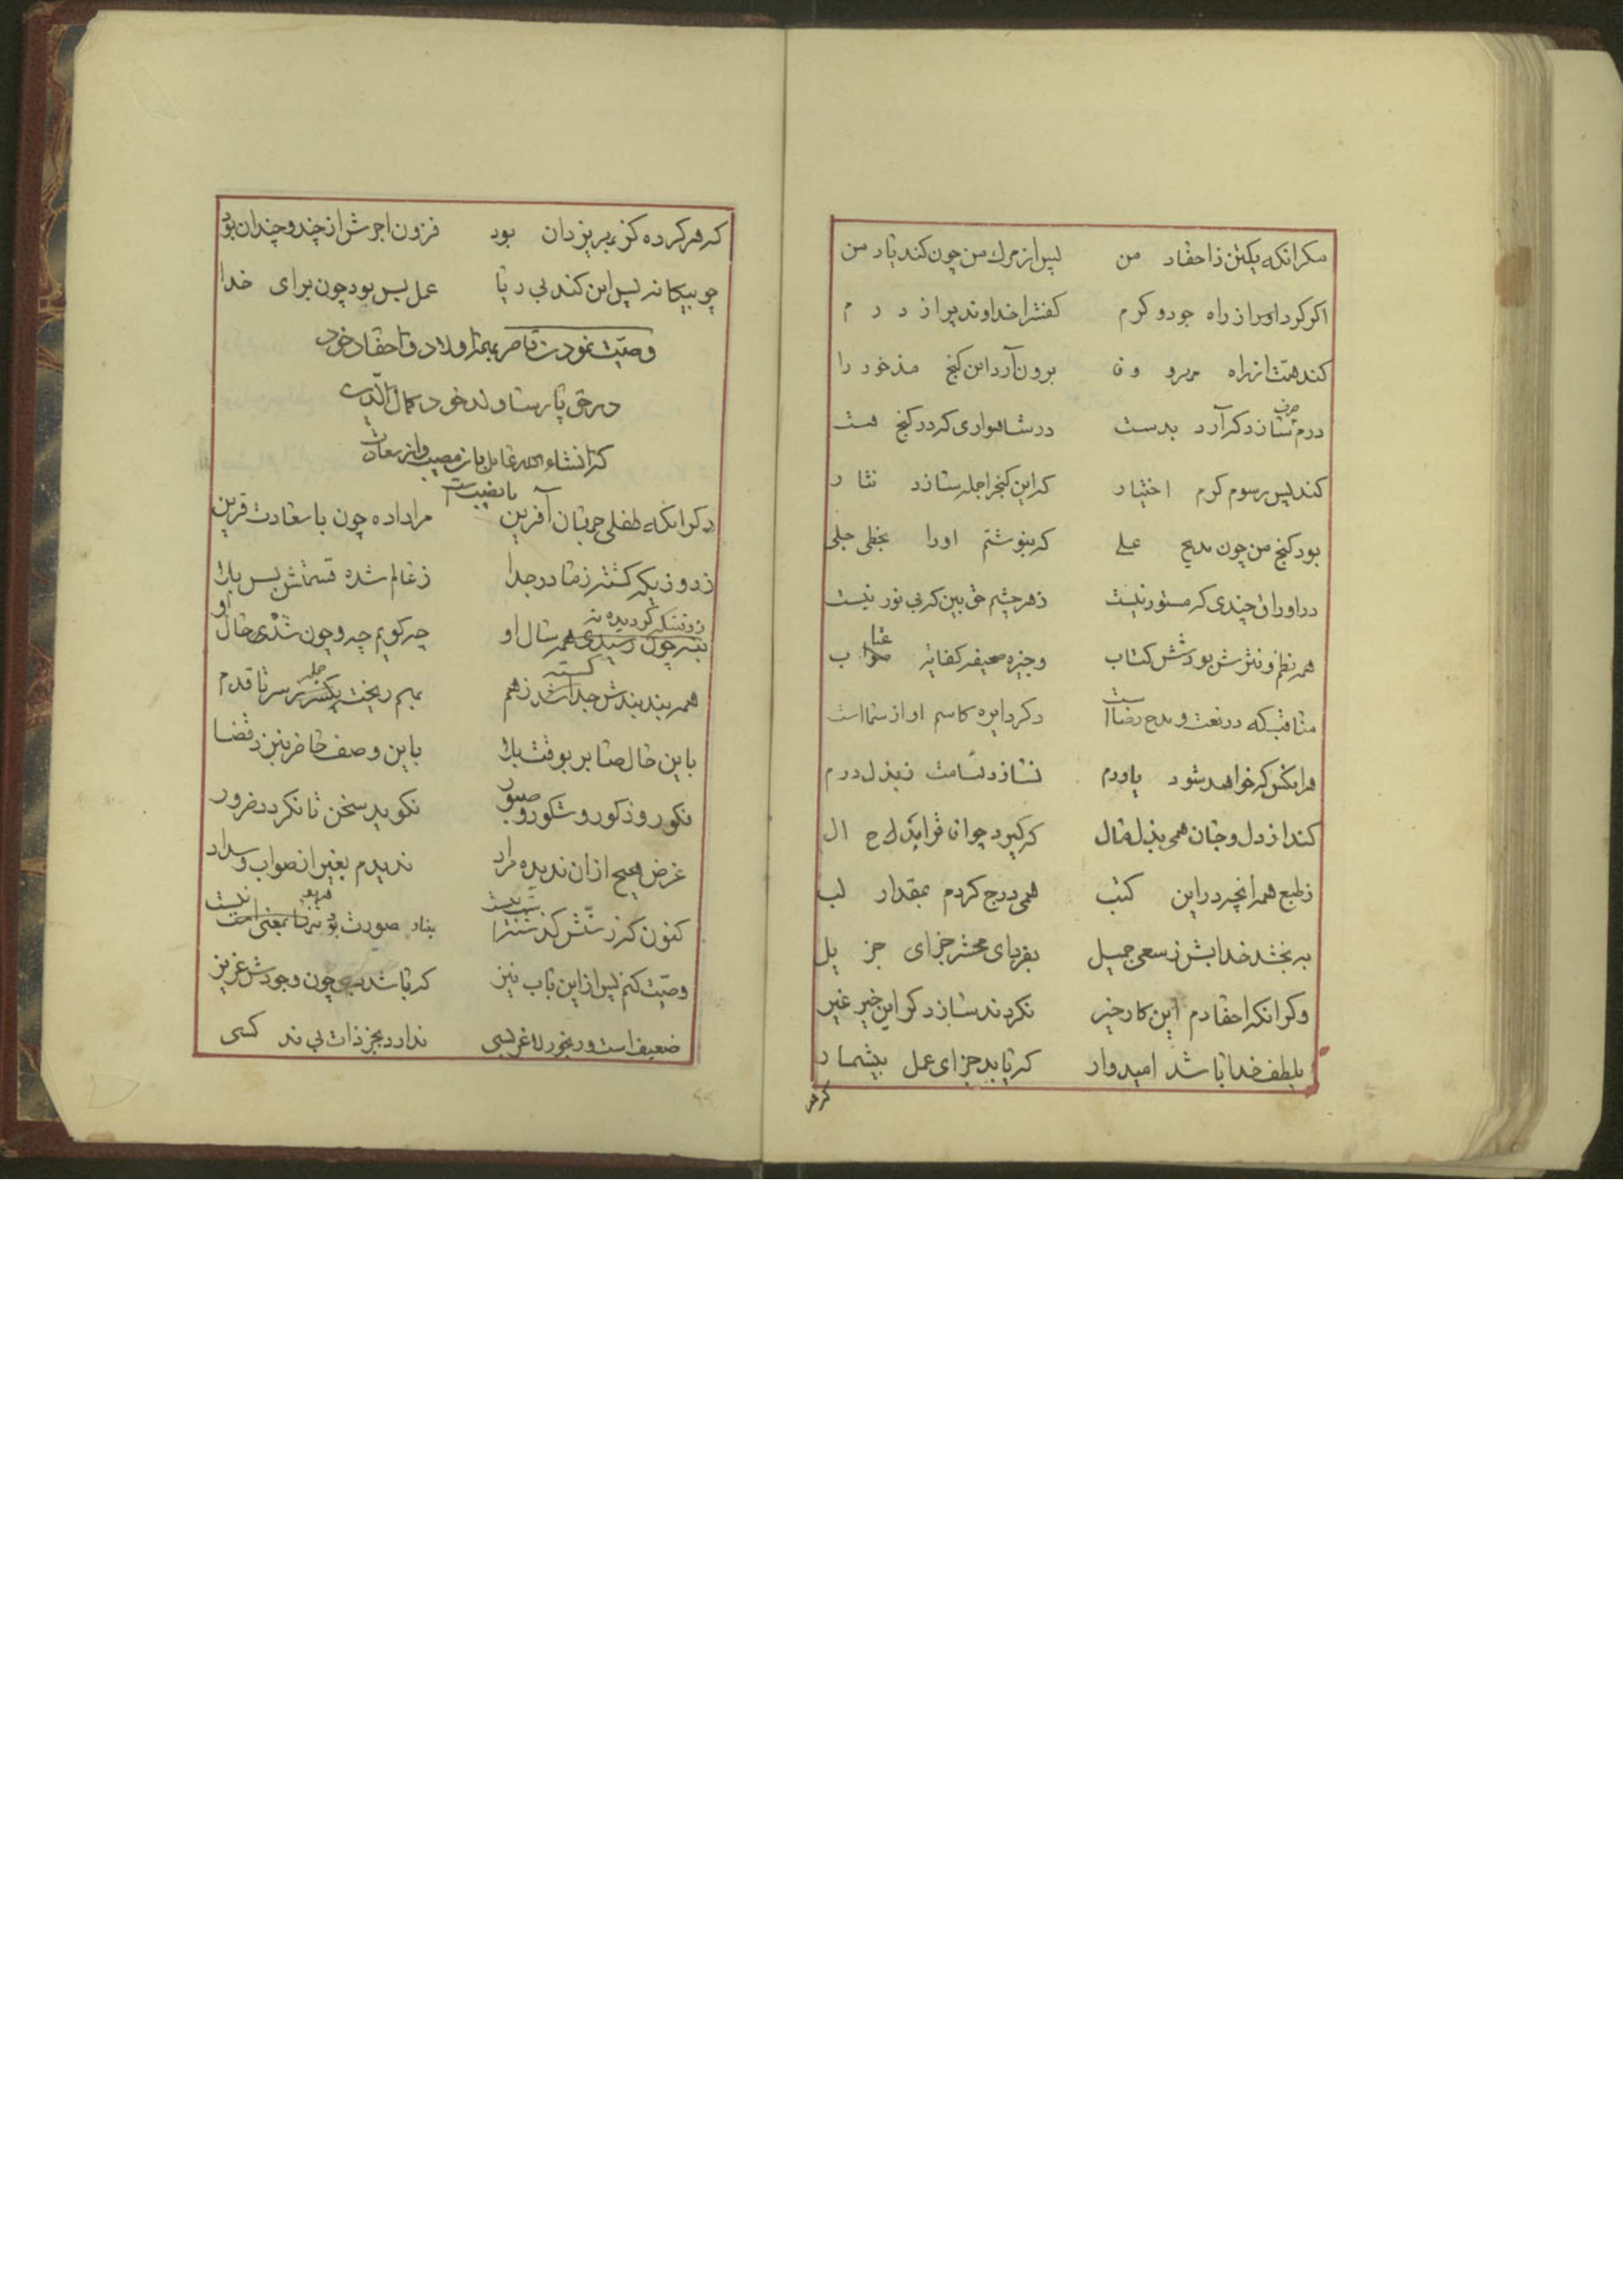 مکر انکه یکتن ز احفاد من پس از مرك من چون کند یاد من
اکر کرد او را از راه جود و کرم کفش را خداوند پر از درم
کند همت از راه مهر و وفا برون آرد این کنج مذخور را
درم صرف سازد کر آرد بدست در شاهواری که در کنج هست
کند پس رسوم کرم اختیار که این کنج را جمله سازد نثار
بود کنج من چون مدیح علی که بنوشتم او را بخطی جلی
در اوراق چندی که مستور نیست ز هر چشم حق بین که بی نور نیست
همه نظم و نثرش بود شش کتاب وجیزه صحیفه کفایه
مناقب که در نعت و مدح رضاست دکر دایره کاسم او از سما است
هر انکس که خواهد شود یاورم نسازد ندامت ز بذل درم
کند از دل و جان همی بذل مال که کیرد جوان
ز طبع همه انچه در این کتب همی درج کردم بمقدار لب
ببخشد خدایش ز سعی جمیل بفردای محشر جزای جزیل
وکر انکه احفادم این کار خیر نکردند سازد کر این خیر غیر
بلطف خدا باشد امیدوار که یابد جزای عمل بیشمار
که هر
که هر کرده کز بهر یزدان بود فزون اجرش از چند و چندان بود
چو بیکانه پس این کند بی ریا عمل بس بود چون برای خدا
وصیت نمودن ناصر بهمه اولاد و احفاد خود
در حق پارسا ولد خود کمال الدین
که انشاء الله عامل باین وصیت و از سعادت
با نصیب است
دکر انکه طفلی جهان آفرین مرا داده چون با سعادت قرین
ز دو زیکه کشته ز مادر جدا ز عالم شده قسمتش بس بلا
کردیده نه چون رسیدی همه سال او چه کویم چه و چون شدی حال او
همه بند بندش کسسته جدا شد ز هم بهم ریخت یکسر جمله سر تا قدم
باین حال صابر بوقت بلا باین وصف حاضر بنزد قضا
نکور و ذکور و شکور و صبور نکوید سخن تا نکردد ضرور
غرض هیچ از ان ندیده مراد ندیدم بغیر از صواب و سداد
کنون کز سنش کذشته بناد صورت نیست
وصیت کنم پس از این باب نیز که باشد بسی چون وجودش عزیز
ضعیف است و رنجور و لاغر بسی ندارد بجز ذات بی ند کسی